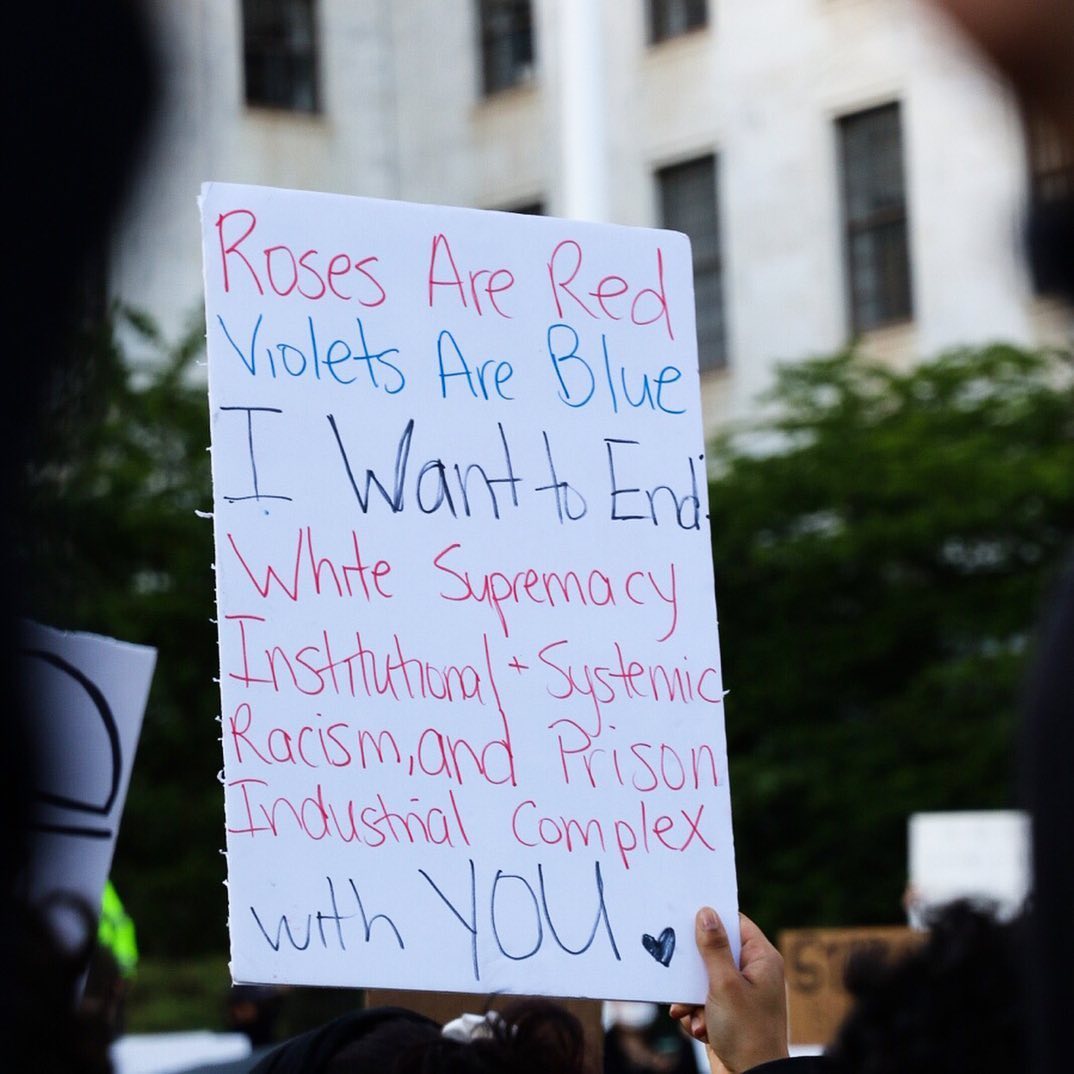 Roses Are Red
Violets Are Blue
I Want to End:
White Supremacy
Institutional + Systemic
Racism, and Prison
Industrial Complex
with YOU.